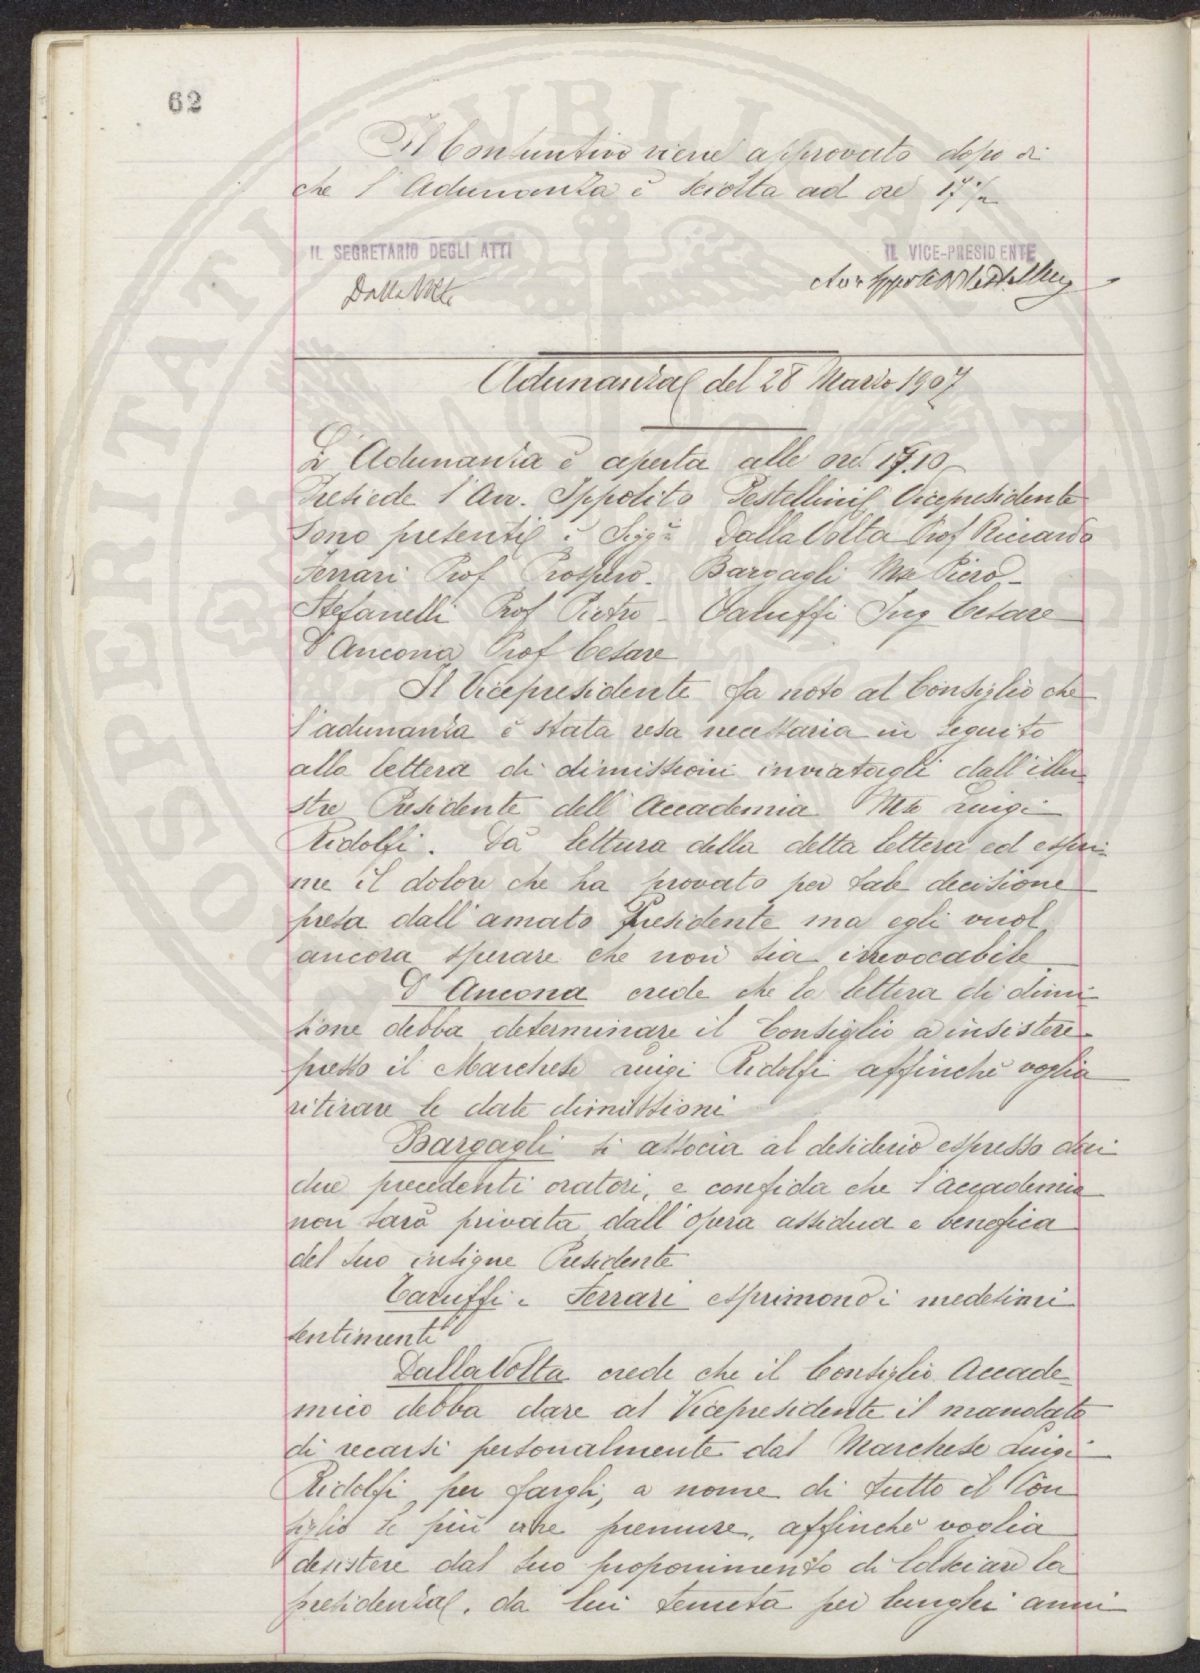 62
Il Consuntivo viene approvato dopo di
che l'Adunanza è sciolta ad ore 17 1/2
IL SEGRETARIO DEGLI ATTI
IL VICE-PRESIDENTE
DallaVolta
Adunanza del 28 Marzo 1907
L'Adunanza è aperta alle ore 17.10
Presiede l'Avv. Ippolito Pestellini Vicepresidente
Sono presenti i Sigg.ri Dalla Volta Prof Riccardo
Ferrari Prof Prospero - Bargagli Mse Piero -
Stefanelli Prof Pietro - Taruffi Ing Cesare
D'Ancona Prof Cesare
Il Vicepresidente fa noto al Consiglio che
l'adunanza è stata resa necessaria in seguito
alla lettera di dimissioni inviatagli dall'illu-
stre Presidente dell'Accademia Mse Luigi
Ridolfi. Dà lettura della detta lettera ed espri-
me il dolore che ha provato per tale decisione
presa dall'amato Presidente ma egli vuol
ancora sperare che non sia irrevocabile
D'Ancona crede che la lettera di dimi-
sione debba determinare il Consiglio a insistere
presso il Marchese Luigi Ridolfi affinchè voglia
ritirare le date dimissioni
Bargagli si associa al desiderio espresso dai
due precedenti oratori, e confida che l'accademia
non sarà privata dall'opera assidua e benefica
del suo insigne Presidente
Taruffi e Ferrari esprimono i medesimi
sentimenti
DallaVolta crede che il Consiglio Accade-
mico debba dare al Vicepresidente il mandato
di recarsi personalmente dal Marchese Luigi
Ridolfi per fargli, a nome di tutto il Con
siglio le più vive premure, affinchè voglia
desistere dal suo proponimento di lasciare la
presidenza, da lui tenuta per lunghi anni
PROSPERITATI PUBLICAE AUGENDAE